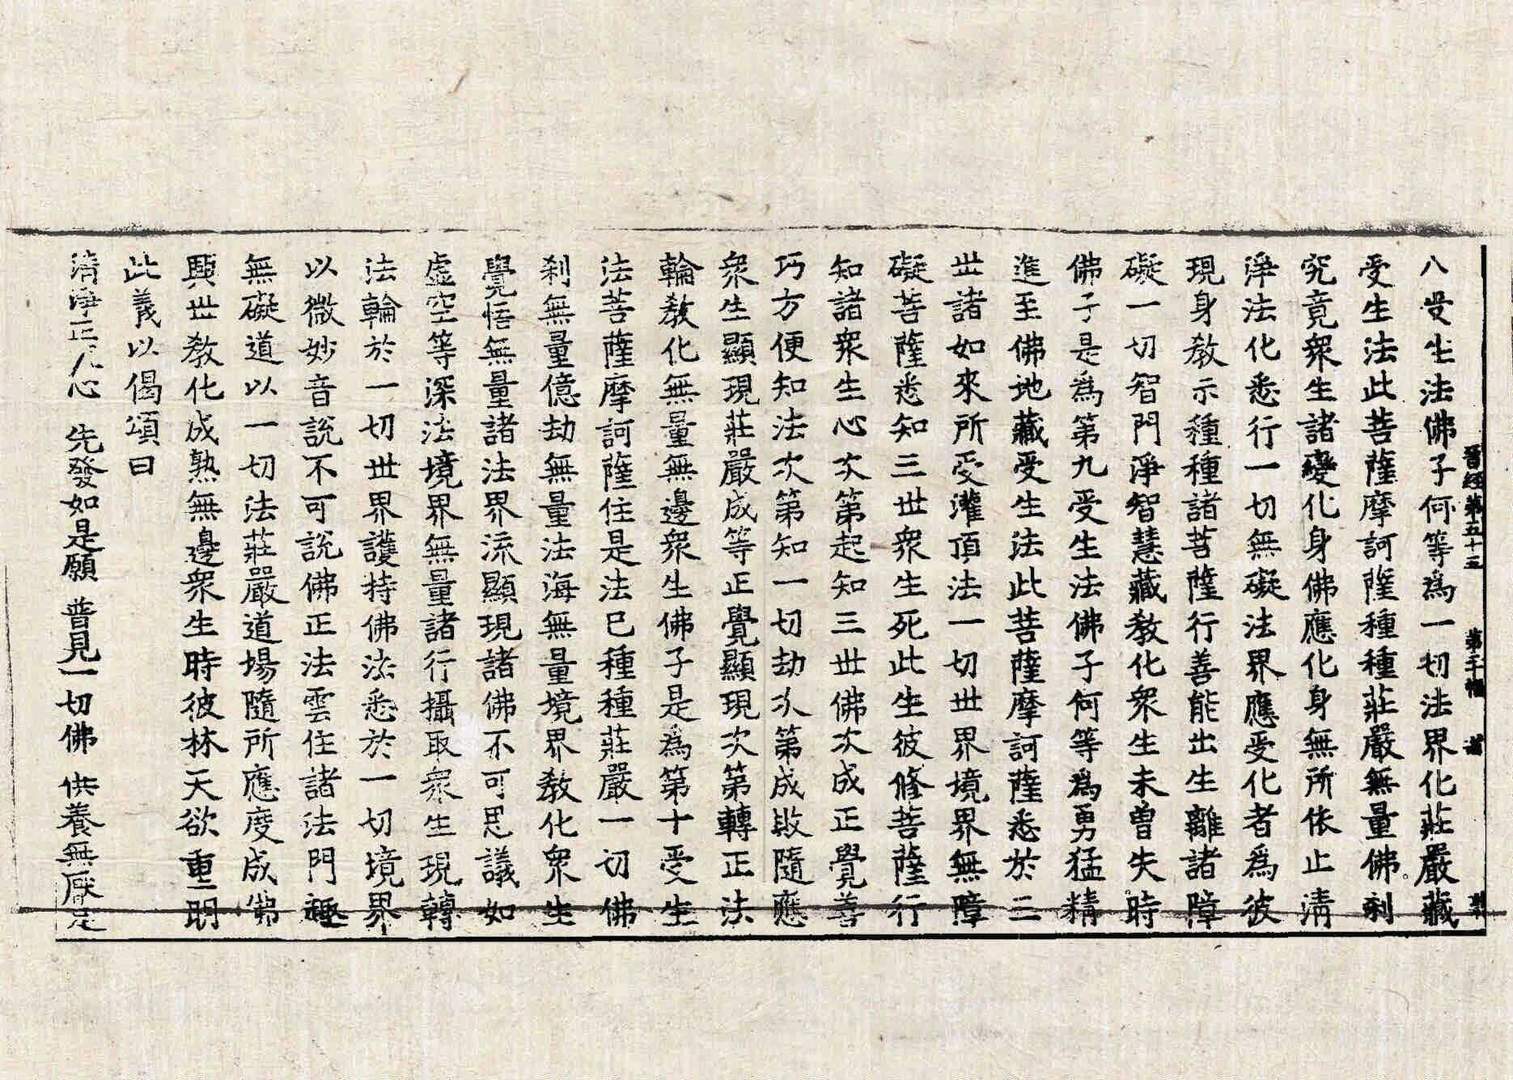 晉經第五十三
八受生法佛子何等為一切法界化莊嚴藏
受生法此菩薩摩訶薩種種莊嚴無量佛刹
究竟衆生諸變化身佛應化身無所依止清
淨法化悉行一切無礙法界應受化者為彼
現身教示種種諸菩薩行善能出生離諸障
礙一切智門淨智慧藏教化衆生未曾失時
佛子是為第九受生法佛子何等為勇猛精
進至佛地藏受生法此菩薩摩訶薩悉於三
世諸如來所受灌頂法一切世界境界無障
礙菩薩悉知三世衆生死此生彼修菩薩行
知諸衆生心次第起知三世佛次成正覺善
巧方便知法次第知一切劫次第成敗隨應
衆生顯現莊嚴成等正覺顯現次第轉正法
輪教化無量無邊衆生佛子是為第十受生
法菩薩摩訶薩住是法已種種莊嚴一切佛
刹無量億劫無量法海無量境界教化衆生
覺悟無量諸法界流顯現諸佛不可思議如
虛空等深法境界無量諸行攝取衆生現轉
法輪於一切世界護持佛法悉於一切境界
以微妙音說不可說佛正法雲住諸法門趣
無礙道以一切法莊嚴道場隨所應度成佛
興世教化成熟無邊衆生時彼林天欲重明
此義以偈頌曰
清淨正心 先發如是願 普見一切佛 供養無厭足